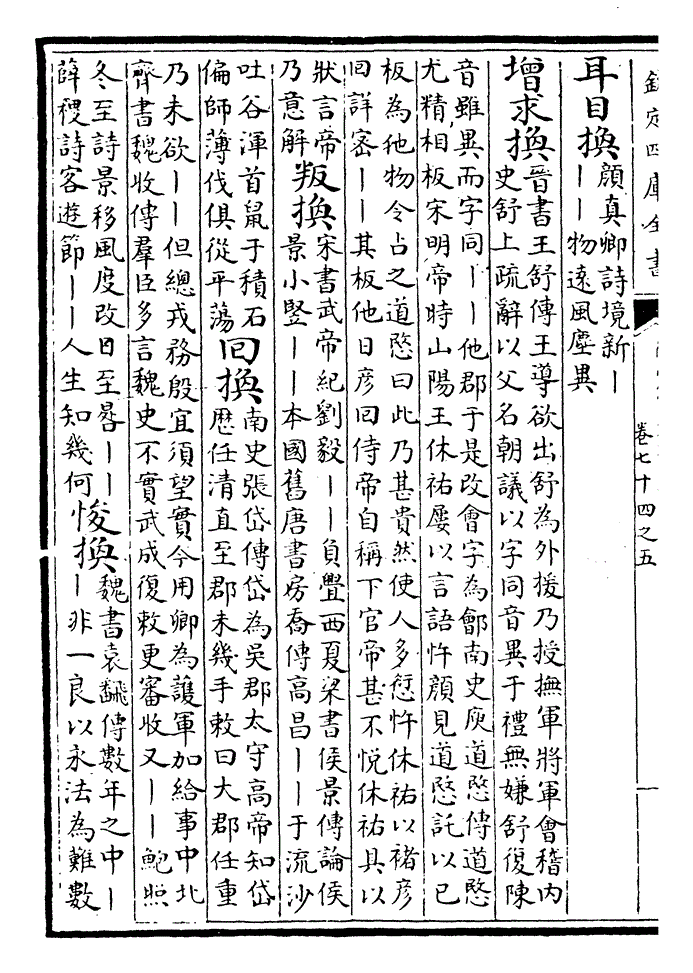 欽定四庫全書
卷七十四之五
耳目換
顔真卿詩境新丨
丨丨物逺風塵異
增求換
晉書王舒傳王導欲出舒為外援乃授撫軍將軍會稽内
史舒上疏辭以父名朝議以字同音異于禮無嫌舒復陳
音雖異而字同丨丨他郡于是改會字為鄶南史庾道愍傳道愍
尤精相板宋明帝時山陽王休祐屢以言語忤顔見道愍託以已
板為他物令占之道愍曰此乃甚貴然使人多愆忤休祐以褚彦
回詳密丨丨其板他日彦回侍帝自稱下官帝甚不悦休祐具以
狀言帝
乃意解
叛換
宋書武帝紀劉毅丨丨負舋西夏梁書侯景傳論侯
景小竪丨丨本國舊唐書房喬傳高昌丨丨于流沙
吐谷渾首鼠于積石
偏師薄伐俱從平蕩
回換
南史張岱傳岱為吳郡太守高帝知岱
歴任清直至郡未幾手敕曰大郡任重
乃未欲丨丨但總戎務殷宜須望實今用卿為護軍加給事中北
齊書魏收傳羣臣多言魏史不實武成復敕更審收又丨丨鮑照
冬至詩景移風度改日至晷丨丨
薛稷詩客遊節丨丨人生知幾何
悛換
魏書袁飜傳數年之中丨
丨非一良以永法為難數